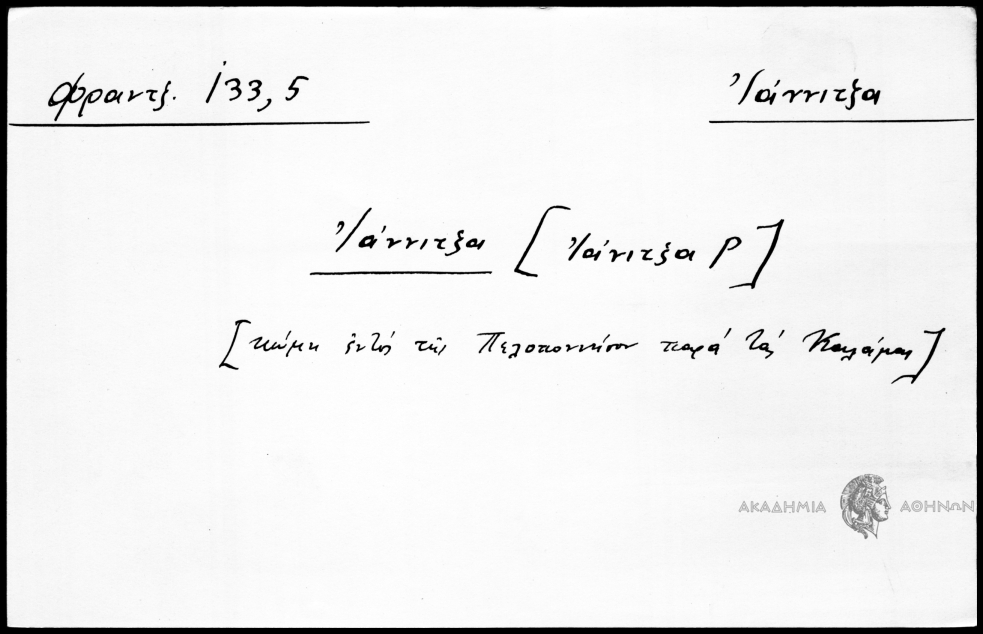 Φραντζ. 133, 5
Ἰάννιτζα
Ἰάννιτζα [Ἰάνιτζα P]
[κώμη ἐντός τῆς Πελοποννήσου παρά τάς Καλάμας]
ΑΚΑΔΗΜΙΑ ΑΘΗΝΩΝ